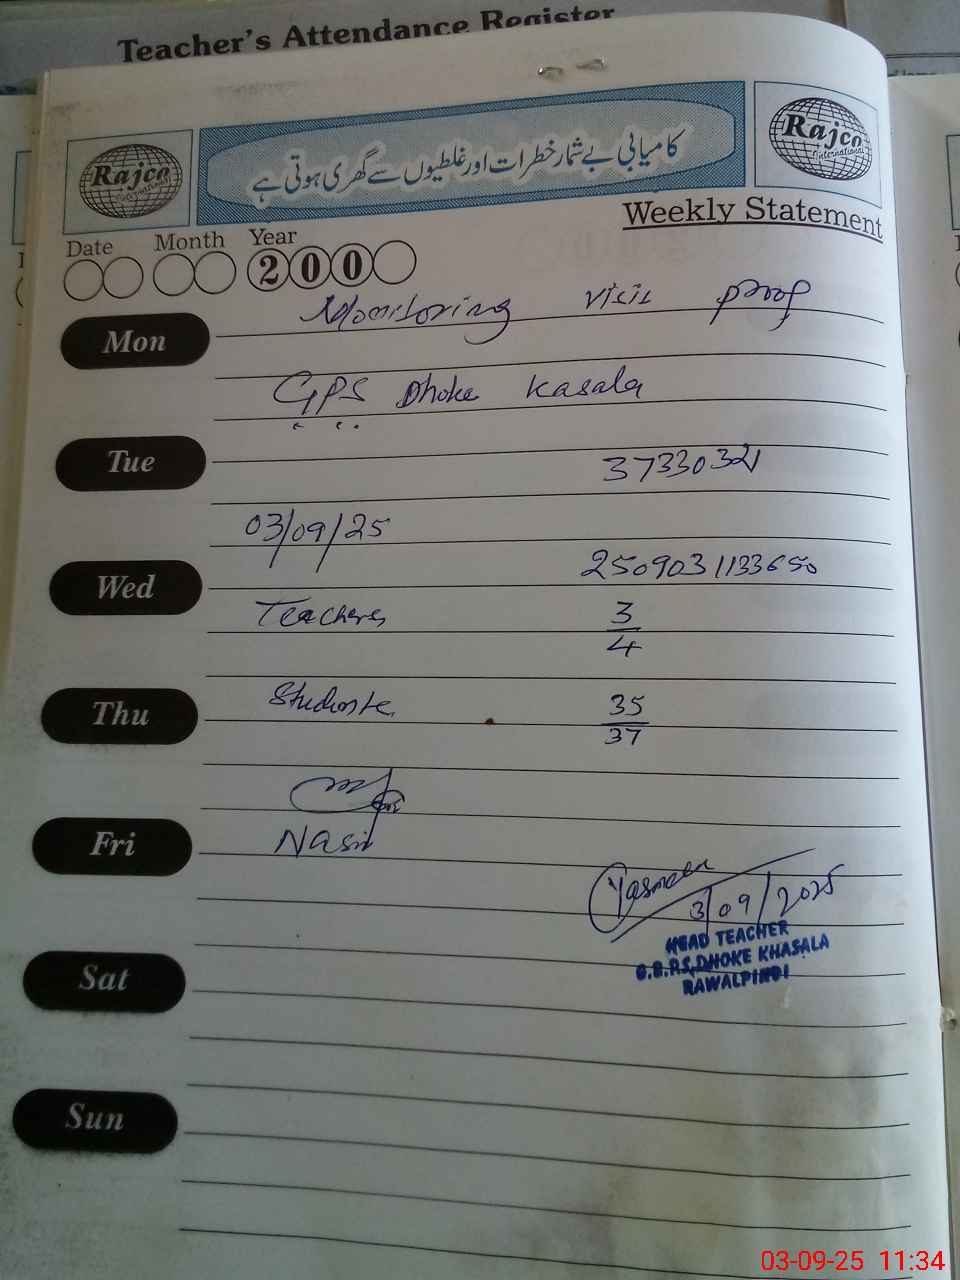 Teacher's Attendance Register
Rajco
International
کامیابی بے شمار خطرات اور غلطیوں سے گھری ہوتی ہے
Rajco
International
Weekly Statement
Date Month Year
2 0 0
Monitoring visit proof
Mon
GPS Dhoke Kasala
Tue
37330321
03/09/25
Wed
2509031133650
Teachers 3/4
Thu
Students 35/37
Nasir
Fri
3/09/2025
HEAD TEACHER
G.B.P.S, DHOKE KHASALA
RAWALPINDI
Sat
Sun
03-09-25 11:34